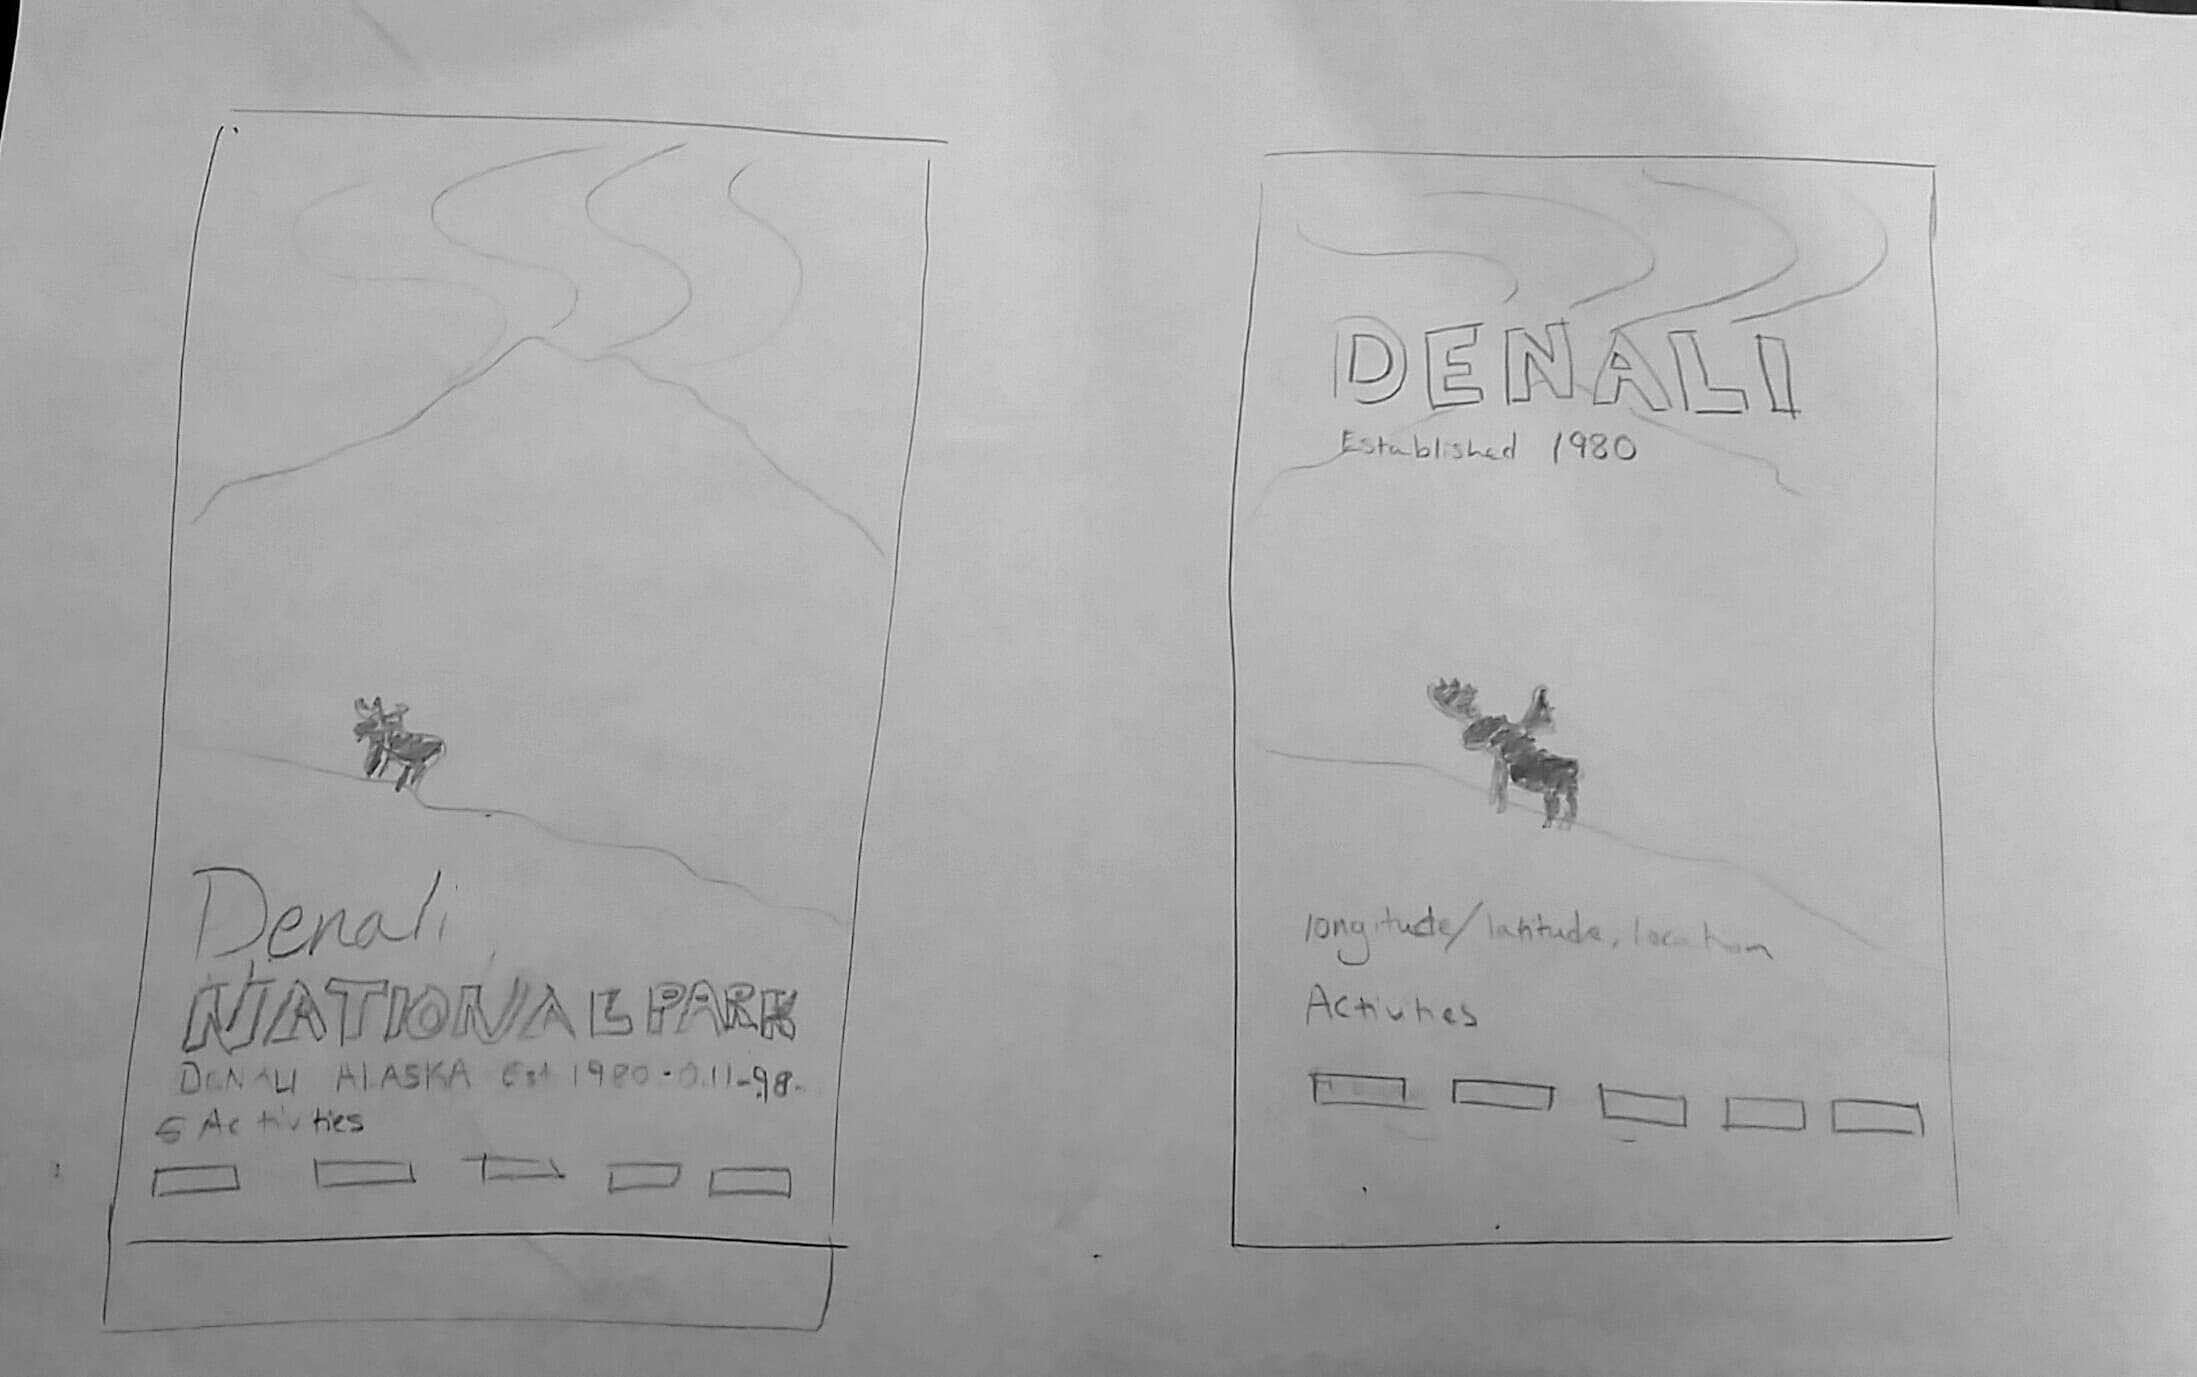 Denali
NATIONAL PARK
DENALI ALASKA Est 1980
5 Activties
DENALI
Established 1980
longitude/latitude, location
Activities